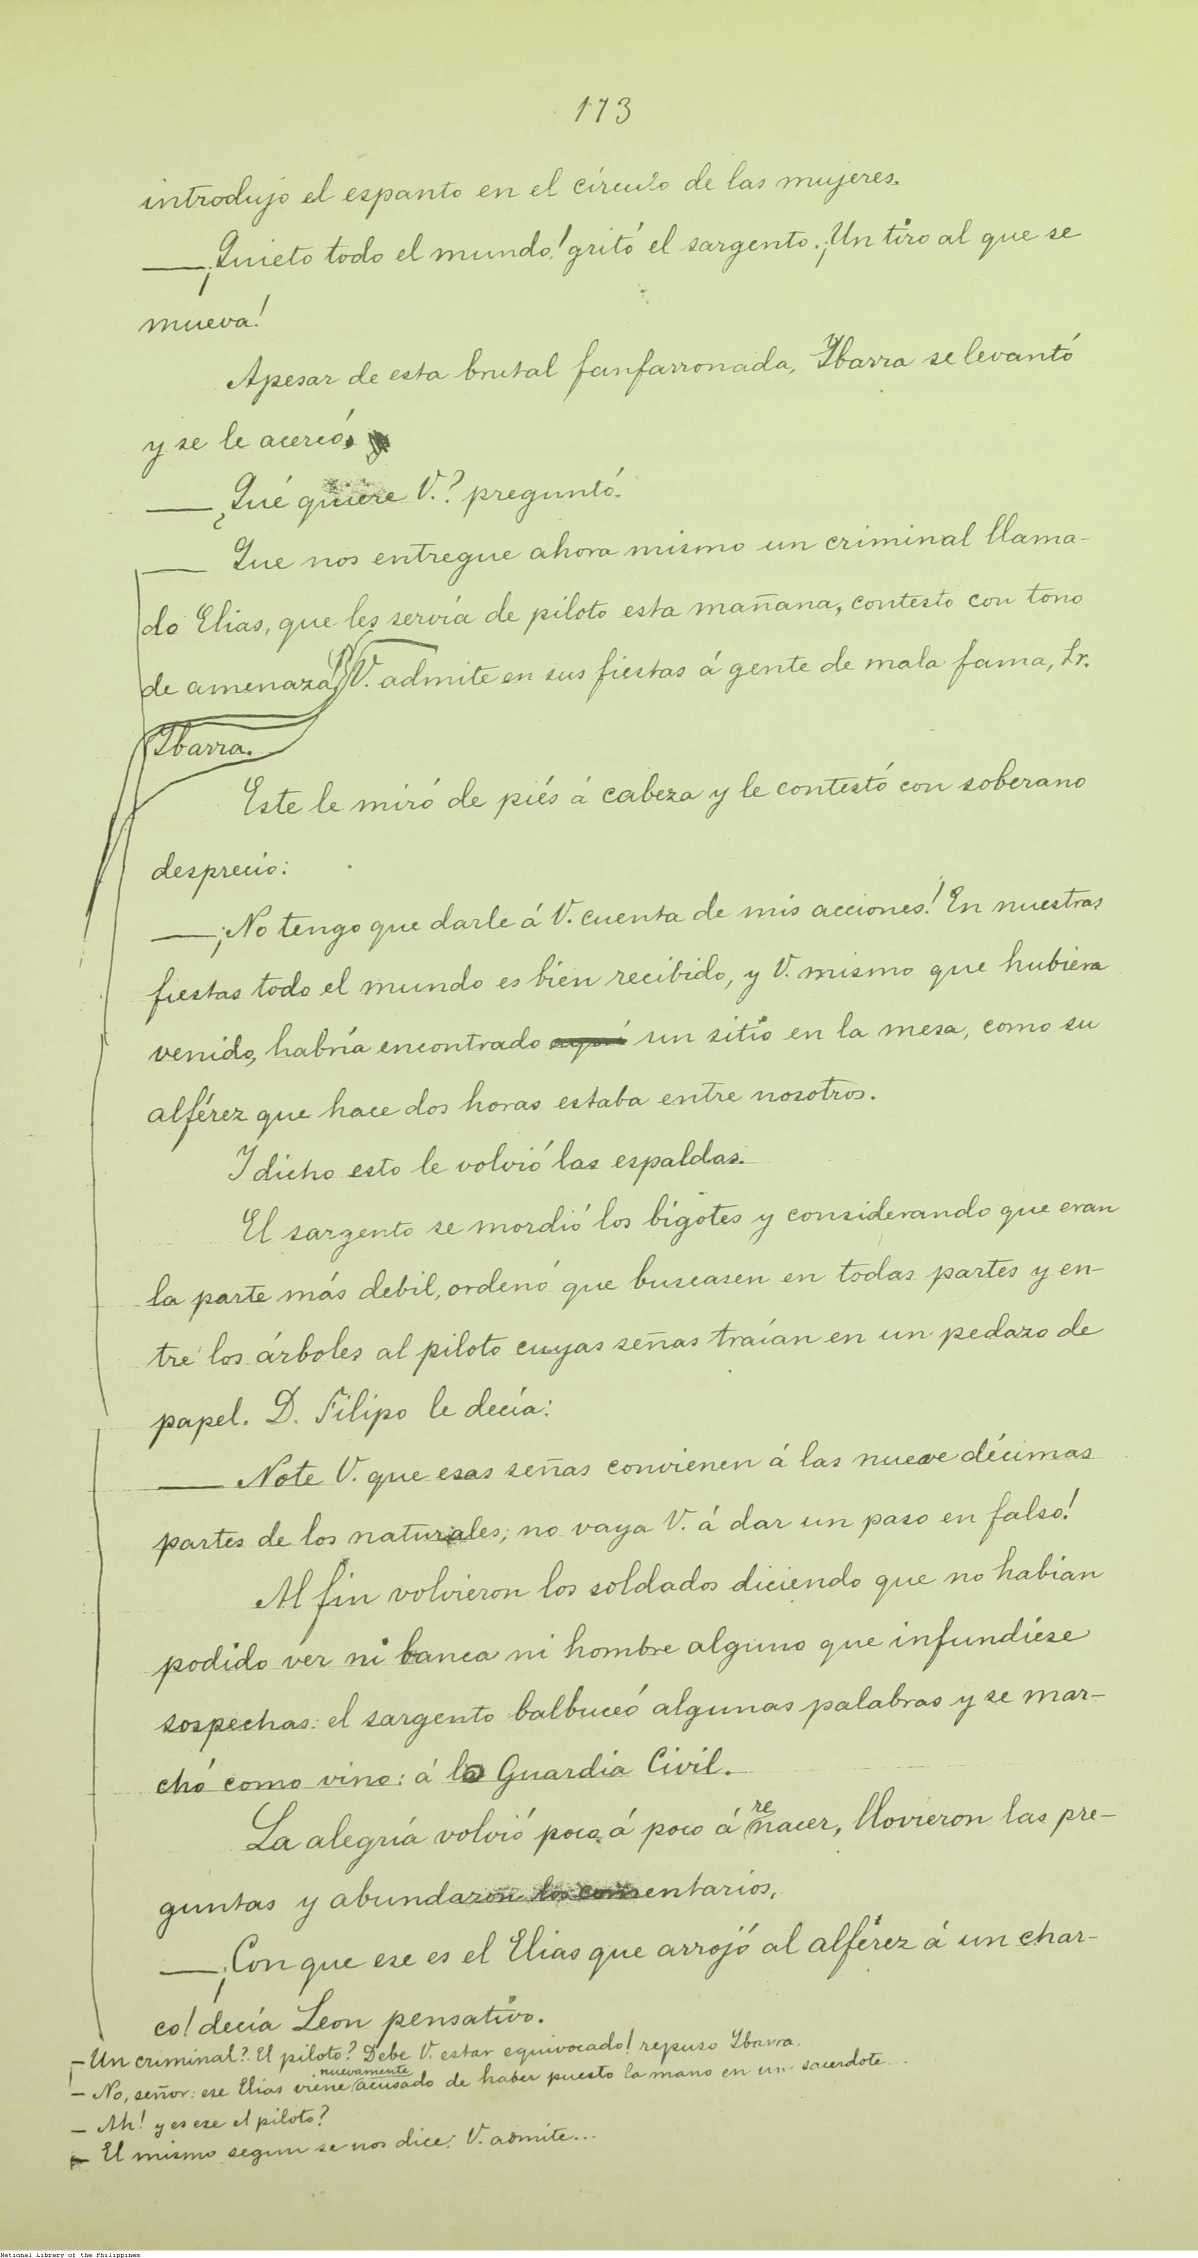 173
introdujo el espanto en el círculo de las mujeres.
—¡Quieto todo el mundo! gritó el sargento. ¡Un tiro al que se
mueva!
Apesar de esta brutal fanfarronada, Ybarra se levantó
y se le acercó.
—¿Qué quiere V.? preguntó.
— Que nos entregue ahora mismo un criminal llama-
do Elias, que les servía de piloto esta mañana, contesto con tono
de amenaza. V. admite en sus fiestas á gente de mala fama, Sr.
Ybarra.
Este le miró de piés á cabeza y le contestó con soberano
desprecio:
—¡No tengo que darle á V. cuenta de mis acciones! En nuestras
fiestas todo el mundo es bien recibido, y V. mismo que hubiera
venido, habría encontrado aquí un sitio en la mesa, como su
alférez que hace dos horas estaba entre nosotros.
Y dicho esto le volvió las espaldas.
El sargento se mordió los bigotes y considerando que eran
la parte más debil, ordenó que buscasen en todas partes y en-
tre los árboles al piloto cuyas señas traían en un pedazo de
papel. D. Filipo le decía:
— Note V. que esas señas convienen á las nueve décimas
partes de los naturales; no vaya V. á dar un paso en falso!
Al fin volvieron los soldados diciendo que no habían
podido ver ni banca ni hombre alguno que infundiese
sospechas: el sargento balbuceó algunas palabras y se mar-
chó como vino: á la Guardia Civil.
La alegría volvió poco á poco á renacer, llovieron las pre-
guntas y abundaron los comentarios.
—¡Con que ese es el Elias que arrojó al alférez á un char-
co! decía Leon pensativo.
—¡Un criminal? El piloto? Debe V. estar equivocado! repuso Ybarra.
— No, señor: ese Elias viene nuevamente acusado de haber puesto la mano en un sacerdote...
— Ah! y es ese el piloto?
— El mismo segun se nos dice: V. admite...
National Library of the Philippines